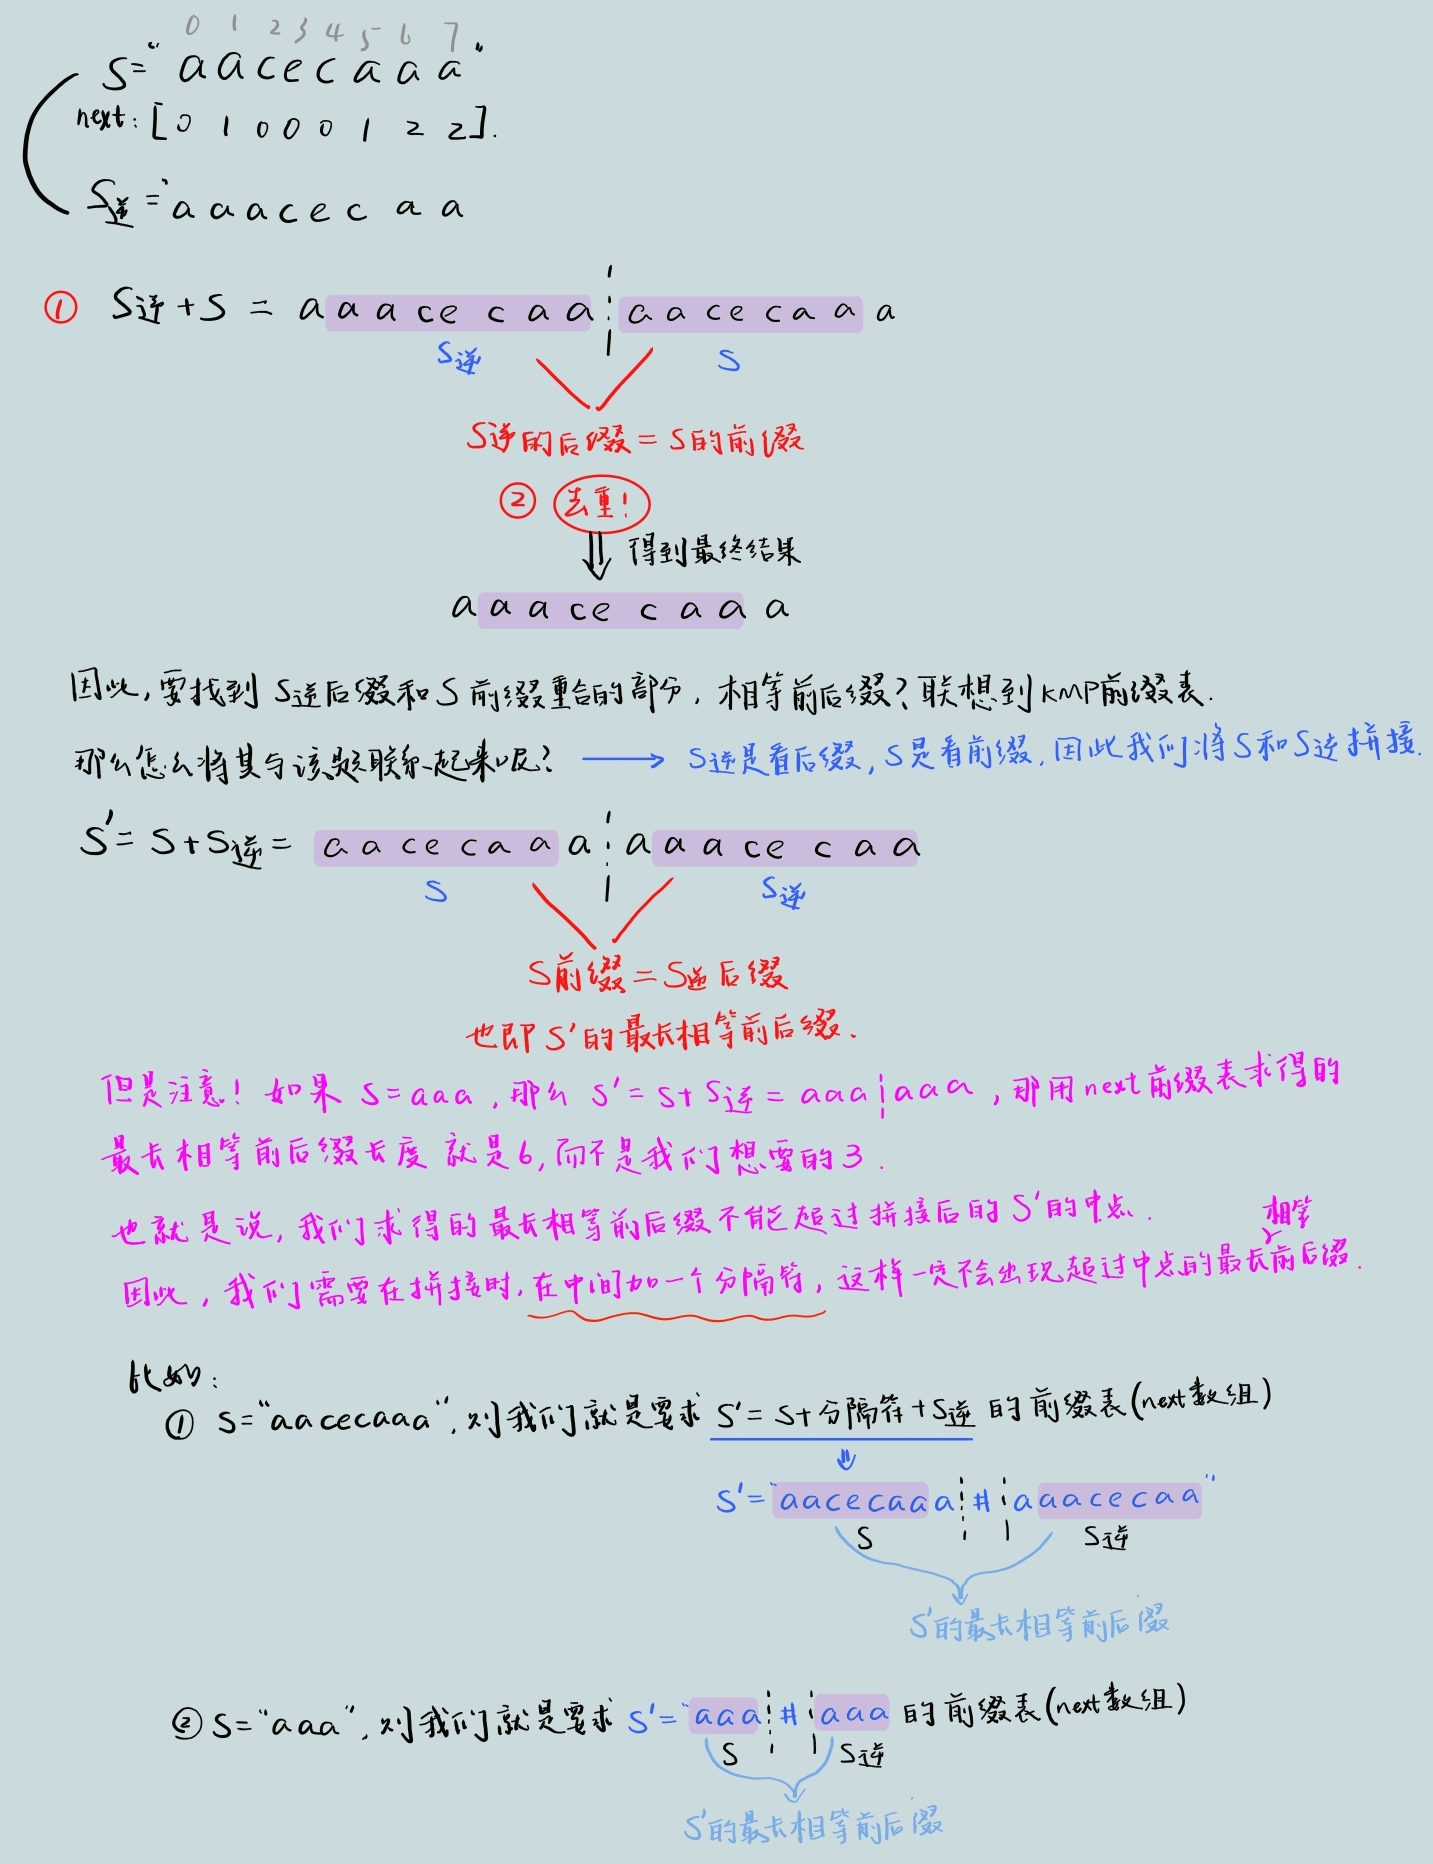 0 1 2 3 4 5 6 7
S="aacecaaa"
next:[0 1 0 0 0 1 2 2].
S逆="aaacecaa
① S逆+S = aaacecaa aacecaaa
S逆 S
S逆的后缀=S的前缀
② 去重!
得到最终结果
aaacecaaa
因此,要找到S逆后缀和S前缀重合的部分,相等前后缀?联想到KMP前缀表.
那么怎么将其与该题联系起来呢? → S逆是看后缀,S是看前缀,因此我们将S和S逆拼接.
S'=S+S逆= aacecaaa aaacecaa
S S逆
S前缀=S逆后缀
也即S'的最长相等前后缀.
但是注意!如果S=aaa,那么S'=S+S逆=aaa aaa,那用next前缀表求得的
最长相等前后缀长度就是6,而不是我们想要的3.
也就是说,我们求得的最长相等前后缀不能超过拼接后的S'的中点.
因此,我们需要在拼接时,在中间加一个分隔符,这样一定不会出现超过中点的最长相等前后缀.
比如:
① S="aacecaaa",则我们就是要求S'=S+分隔符+S逆的前缀表(next数组)
S'="aacecaaa # aaacecaa"
S S逆
S'的最长相等前后缀
② S="aaa",则我们就是要求S'="aaa # aaa的前缀表(next数组)
S S逆
S'的最长相等前后缀